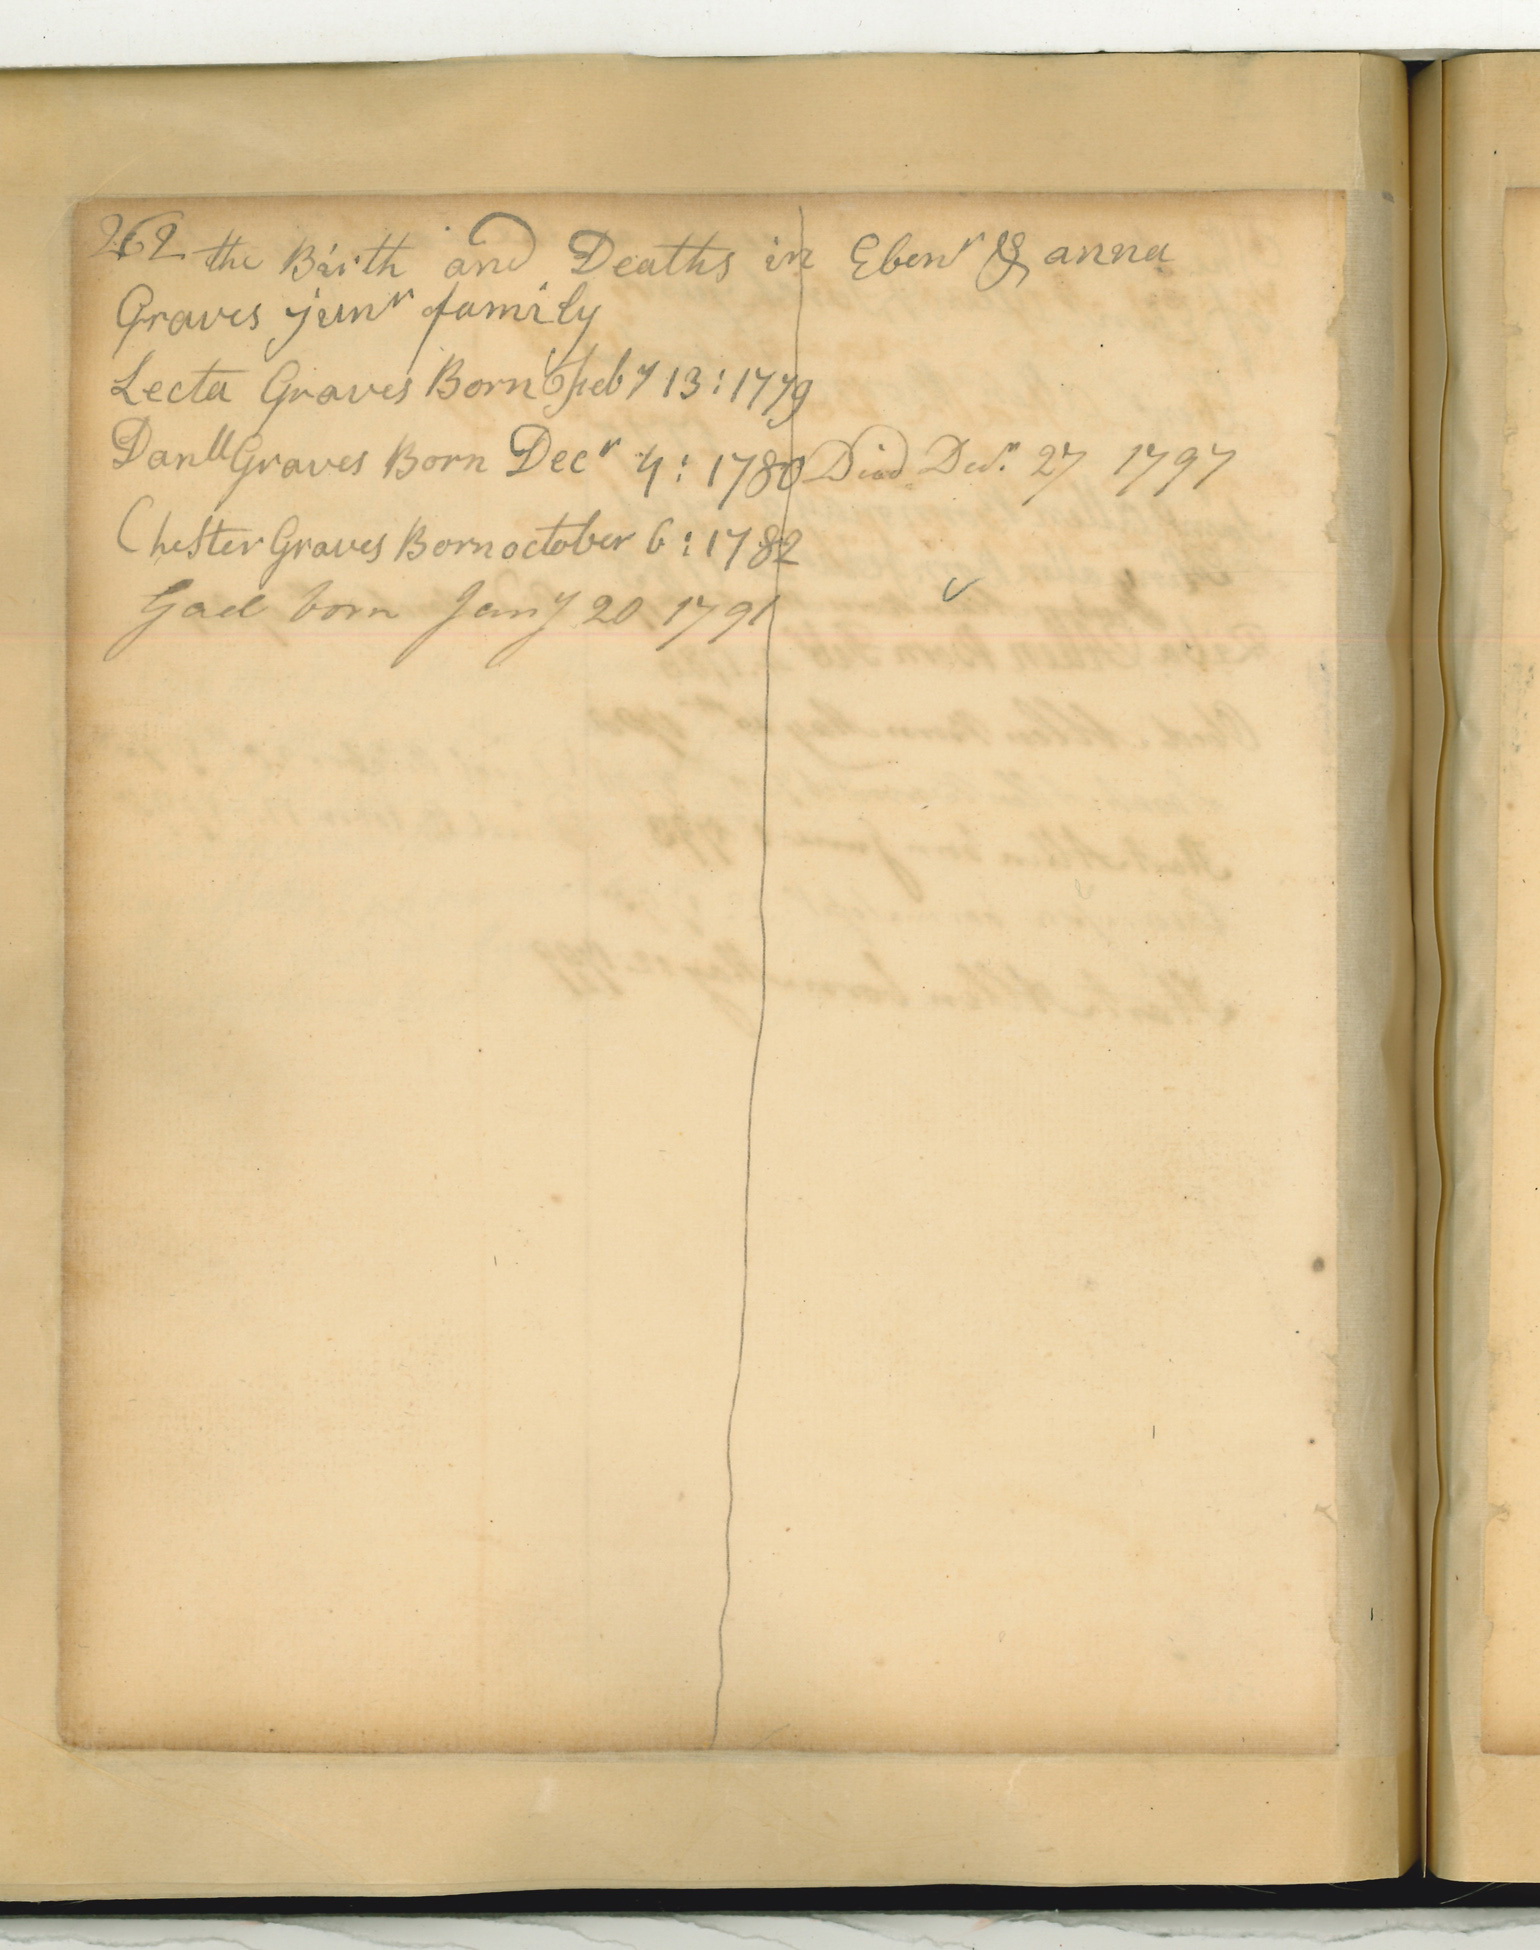 262 the Birth and Deaths in Ebenr & anna
Graves junr family
Lecta Graves Born Feby 13 : 1779
Danll Graves Born Decr 4 : 1780 Died Decr. 27 1797
Chester Graves Born october 6 : 1782
Gad born Jany 20 1791